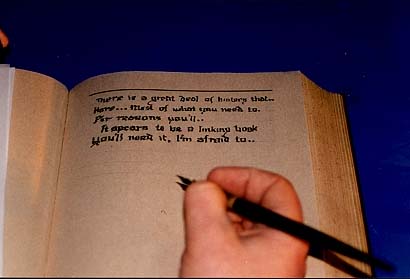 There is a great deal of history that..
Here... Most of what you need to.
For reasons you'll..
It apears to be a linking book
You'll need it, I'm afraid to..